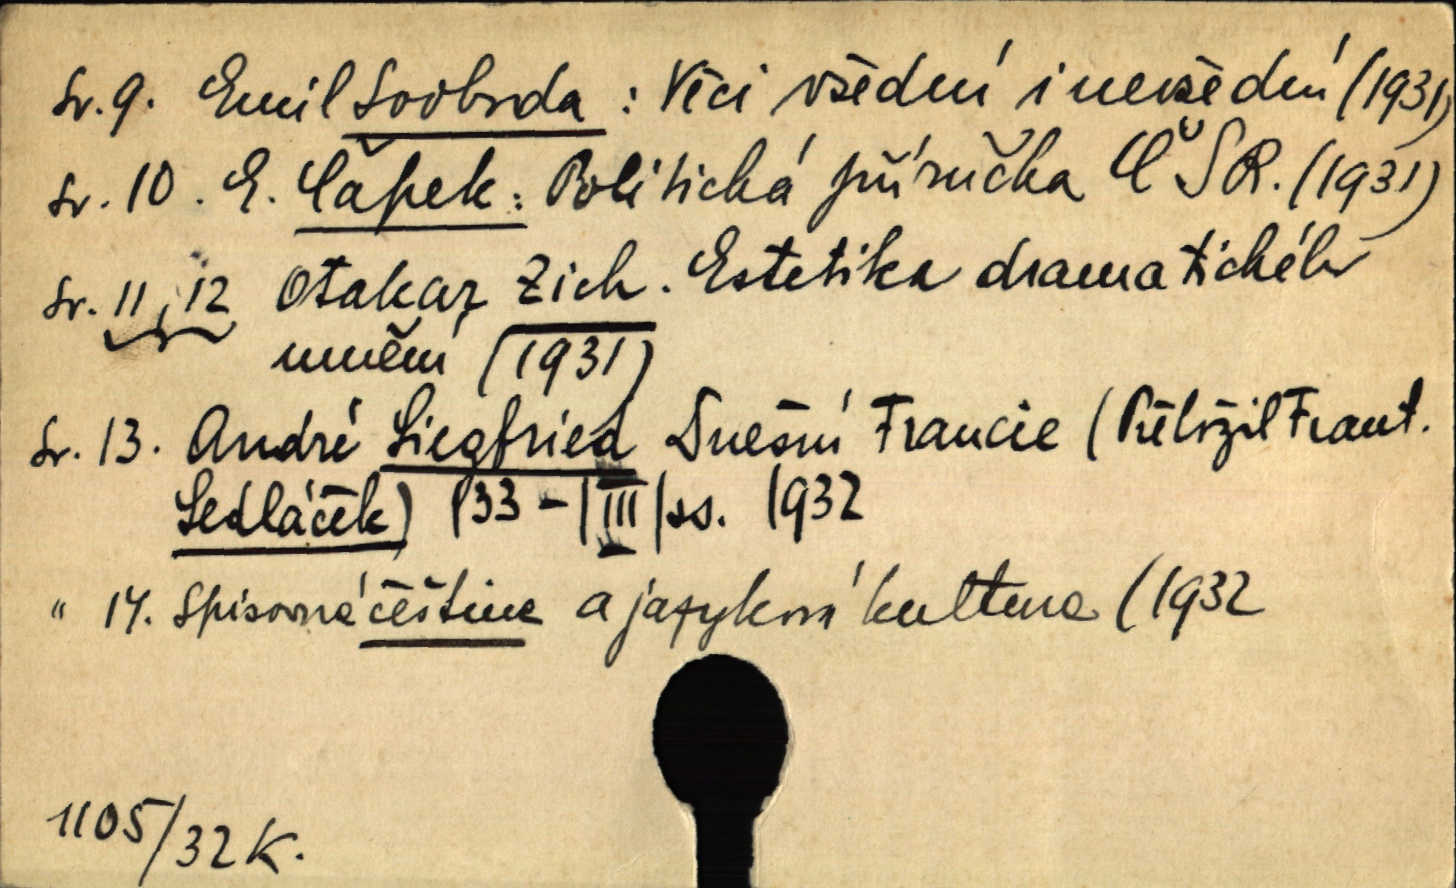 Sv. 9. Emil Svoboda : Věci všední i nevšední (1931)
Sv. 10. E. Čapek: Politická příručka ČSR. (1931)
Sv. 11, 12 Otakar Zich. Estetika dramatického
umění (1931)
Sv. 13. André Siegfried Dnešní Francie (Přeložil Frant.
Sedláček) 133 - |III| ss. 1932
" 14. Spisovná čeština a jazyková kultura (1932
1105/32 K.